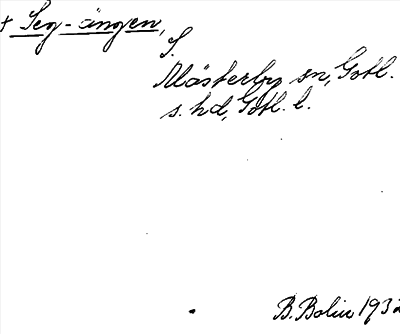 + Seg-ängen,
S.
Klästerby sn, Gotl.
s. hd, Gotl. l.
B. Bolin 1932